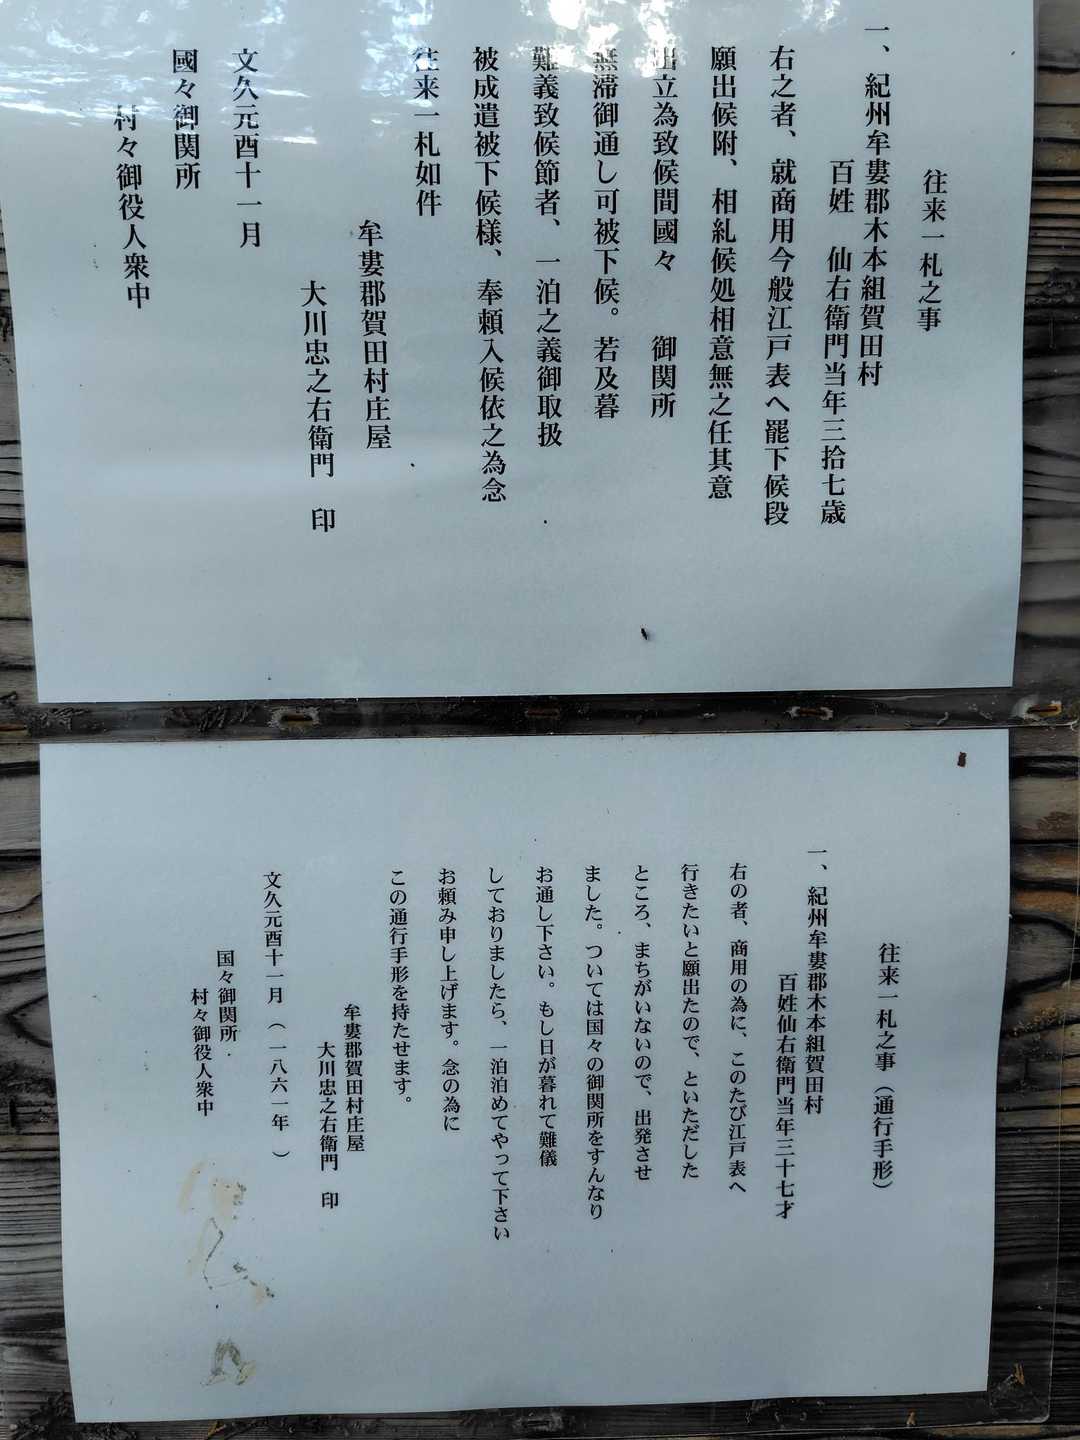 往来一札之事
一、紀州牟婁郡木本組賀田村
百姓　仙右衛門当年三拾七歳
右之者、就商用今般江戸表へ罷下候段
願出候附、相糺候処相意無之任其意
出立為致候間國々　御関所
無滞御通し可被下候。若及暮
難義致候節者、一泊之義御取扱
被成遣被下候様、奉頼入候依之為念
往来一札如件
牟婁郡賀田村庄屋
大川忠之右衛門　印
文久元酉十一月
國々御関所
村々御役人衆中
往来一札之事（通行手形）
一、紀州牟婁郡木本組賀田村
百姓仙右衛門当年三十七才
右の者、商用の為に、このたび江戸表へ
行きたいと願出たので、といただした
ところ、まちがいないので、出発させ
ました。ついては国々の御関所をすんなり
お通し下さい。もし日が暮れて難儀
しておりましたら、一泊泊めてやって下さい
お頼み申し上げます。念の為に
この通行手形を持たせます。
牟婁郡賀田村庄屋
大川忠之右衛門　印
文久元酉十一月（一八六一年）
国々御関所
村々御役人衆中